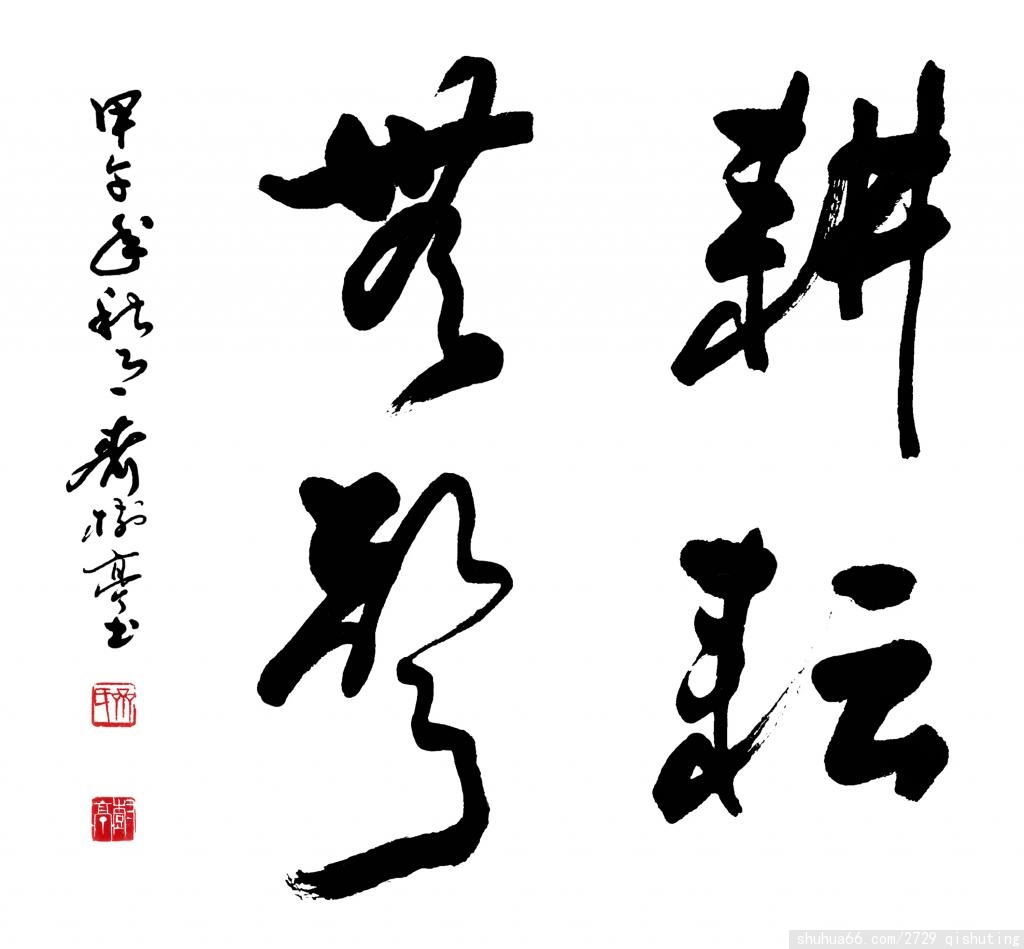 耕耘
無聲
甲午年秋齊樹亭書
齊氏
樹亭
shuhua66.com/2729 qishuting